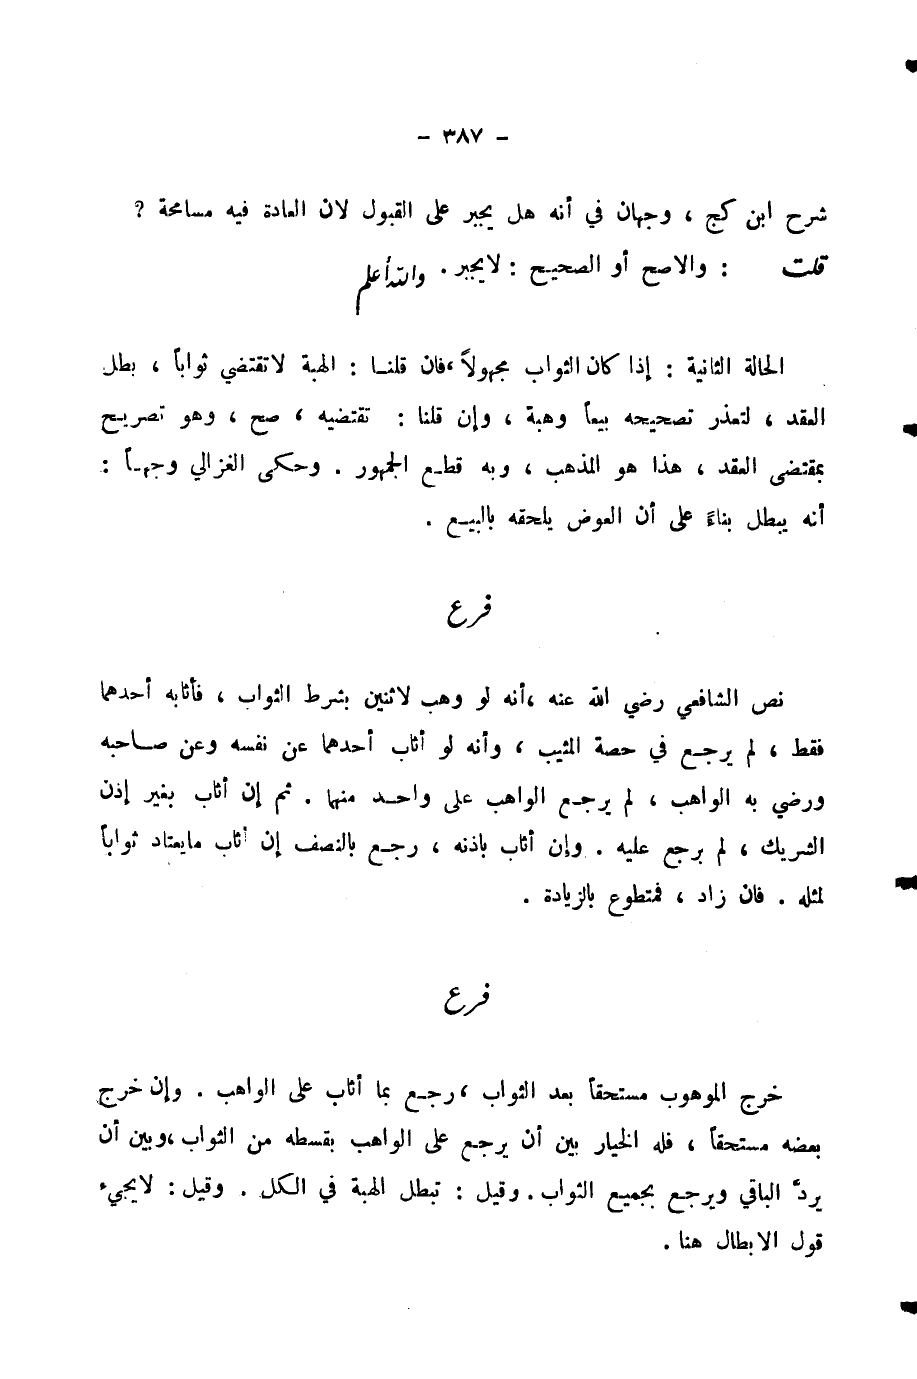 - ٣٨٧ -
شرح ابن كج ، وجهان في أنه هل يجبر على القبول لان العادة فيه مسامحة ؟
قلت : والاصح أو الصحيح : لايجبر . والله أعلم
الحالة الثانية : إذا كان الثواب مجهولاً ،فان قلنــا : الهبة لاتقتضي ثواباً ، بطل
العقد ، لتعذر تصحيحه بيعاً وهبة ، وإن قلنا : تقتضيه ، صح ، وهو تصريـح
بمقتضى العقد ، هذا هو المذهب ، وبه قطـع الجمهور . وحـكى الغزالي وجهـاً :
أنه يبطل بناءً على أن العوض يلحقه بالبيـع .
فرع
نص الشافعي رضي الله عنه ،أنه لو وهب لاثنين بشرط الثواب ، فأثابه أحدهما
فقط ، لم يرجـع في حصة المثيب ، وأنه لو أثاب أحدهما عن نفسه وعن صـاحبه
ورضي به الواهب ، لم يرجـع الواهب على واحـد منهما . ثم إن أثاب بغير إذن
الشريك ، لم يرجع عليه . وإن أثاب باذنه ، رجـع بالنصف إن أثاب مايعتاد ثواباً
لمثله . فان زاد ، فمتطوع بالزيادة .
فرع
خرج الموهوب مستحقاً بعد الثواب ، رجـع بما أثاب على الواهب . وإن خرج
بعضه مستحقاً ، فله الخيار بين أن يرجـع على الواهب بقسطه من الثواب ،وبين أن
يردَّ الباقي ويرجـع بجميع الثواب . وقيل : تبطل الهبة في الكل . وقيل : لايجيء
قول الابطال هنا .